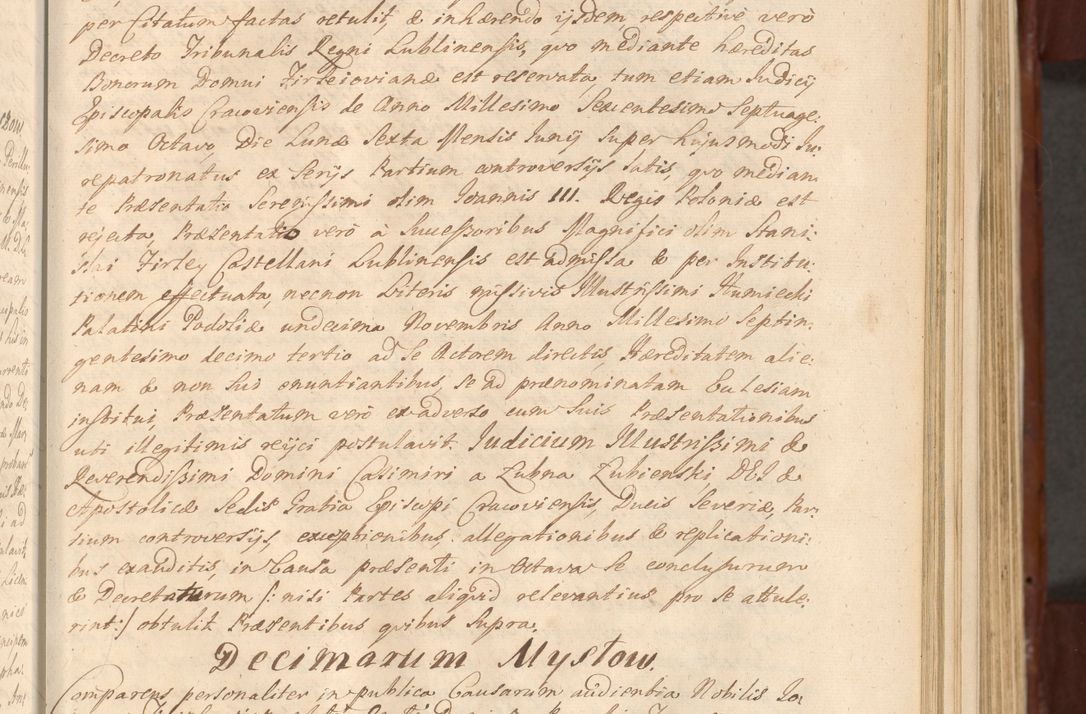 per Citatum factas retulit, & inhærendo ijsdem respective verò
Decreto Tribunalis Regni Lublinensis, qvo mediante hæreditas
Bonorum Domui Firleiovianæ est reservata, tum etiam Judicij
Episcopalis Cracoviensis de Anno Millesimo Sexentesimo Septuage:
simo Octavo, Die Lunæ Sexta Mensis Junij super hujusmodi Ju:
repatronatus ex Serijs Partium controversijs latis, qvo median:
te Præsentatio Serenissimi olim Joannis III. Regis Poloniæ est
rejecta, Præsentatio verò a Successoribus Magnifici olim Stani:
slai Firley Castellani Lublinensis est admissa & per Institu:
tionem effectuata, necnon Literis missivis Illustrissimi Humiecki
Palatini Podoliæ undecima Novembris Anno Millesimo Septin:
gentesimo decimo tertio ad se Actorem directis, Hæreditatem alie:
nam & non suam enuntiantibus, se ad prænominatam Ecclesiam
institui, Præsentatum verò ex adverso cum suis Præsentationibus
uti illegitimis reijci postulavit. Judicium Illustrissimi &
Reverendissimi Domini Casimiri a Łubna Łubienski DEI &
Apostolicæ Sedis Gratia Episcopi Cracoviensis, Ducis Severiæ, Par:
tium controversijs, exceptionibus, allegationibus & replicationi:
bus exauditis, in Causa præsenti in Octava se conclusurum
& Decretaturum /: nisi Partes aliqvid relevantius pro se attule:
rint :/ obtulit Præsentibus qvibus supra.
Decimarum Mystow.
Comparens personaliter in publica Causarum audientia Nobilis Jo: